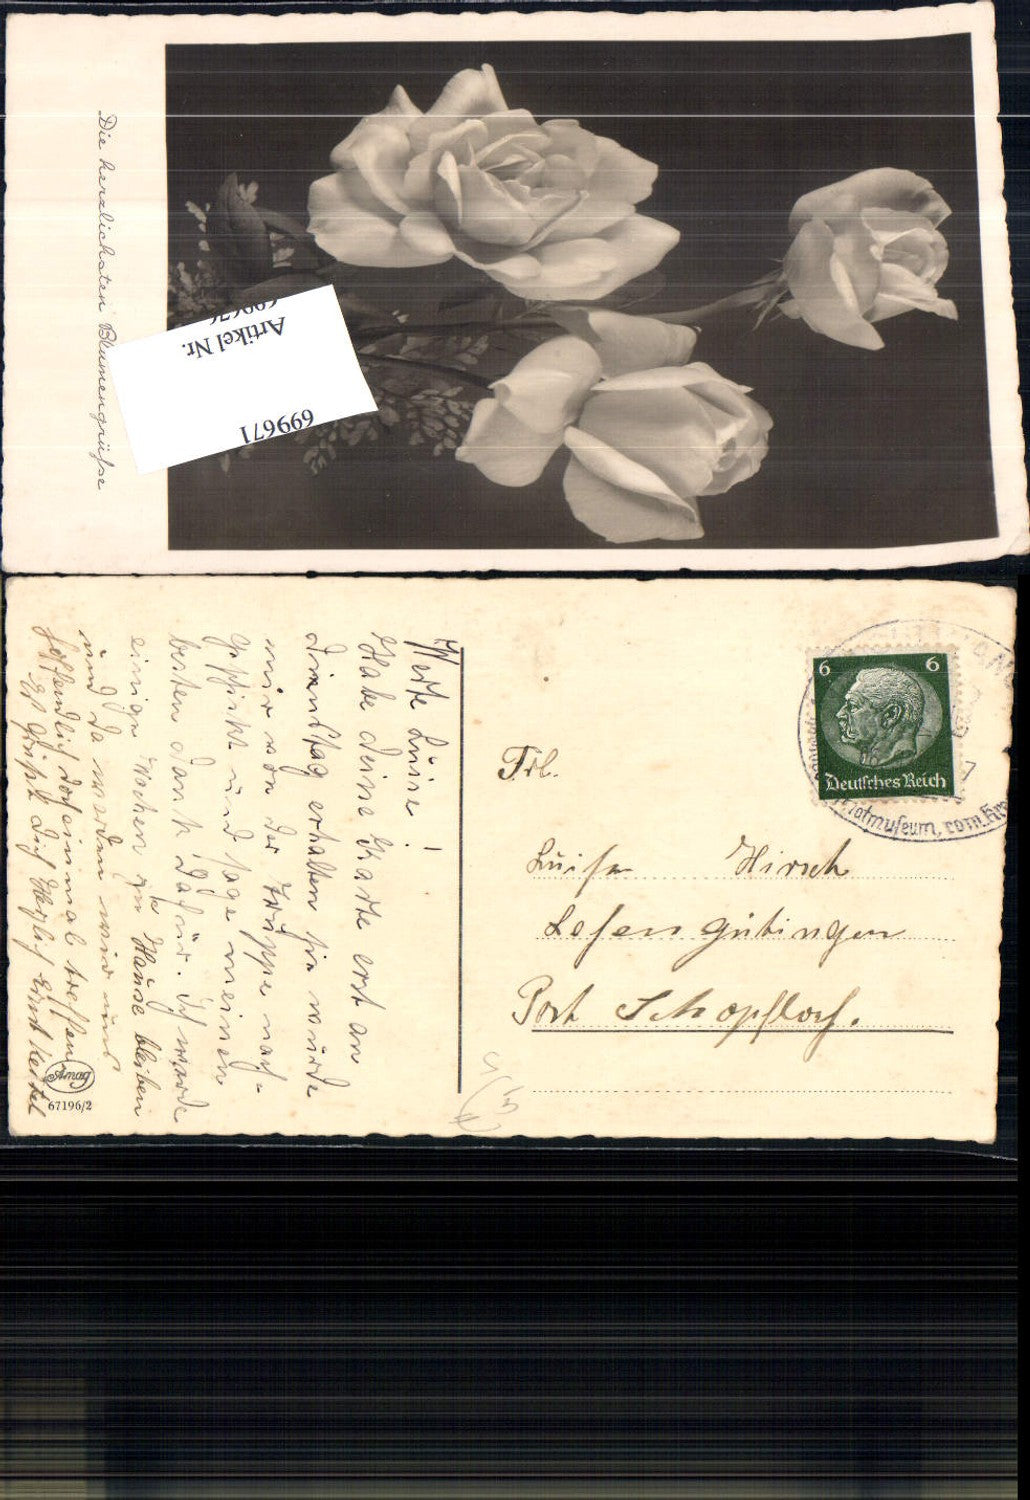 Die herzlichsten Blumengrüße
699676
Artikel Nr.
699671
Werte Luise!
Habe deine Karte erst an
dienstag erhalten sie wurde
mir von der Truppe nach-
geschickt und sage meinen
besten dank dafür. Ich werde
einige Wochen zu Hause bleiben
und da werden wir uns
hoffendlich doch einmal treffen
Es grüßt dich Herzlich Ernst
67196/2
6 6
Deutsches Reich
Frl.
Luise Hirsch
Lesen gütingen
Post Schopfloch.